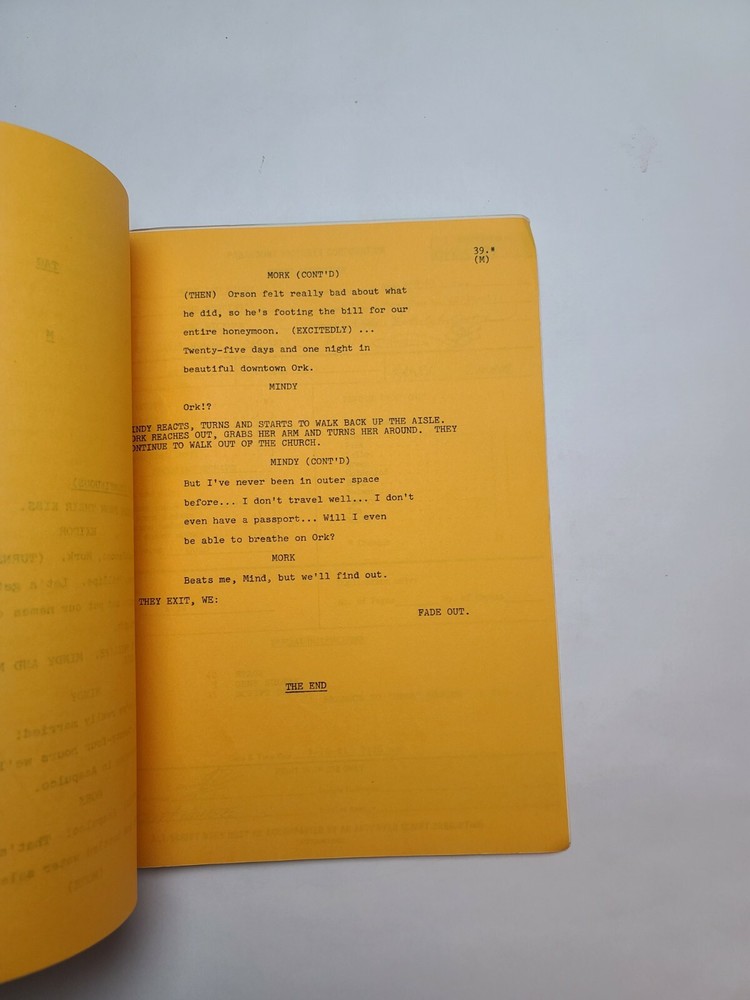 39.*
(M)
MORK (CONT'D)
(THEN) Orson felt really bad about what
he did, so he's footing the bill for our
entire honeymoon. (EXCITEDLY) ...
Twenty-five days and one night in
beautiful downtown Ork.
MINDY
Ork!?
INDY REACTS, TURNS AND STARTS TO WALK BACK UP THE AISLE.
ORK REACHES OUT, GRABS HER ARM AND TURNS HER AROUND. THEY
ONTINUE TO WALK OUT OF THE CHURCH.
MINDY (CONT'D)
But I've never been in outer space
before... I don't travel well... I don't
even have a passport... Will I even
be able to breathe on Ork?
MORK
Beats me, Mind, but we'll find out.
THEY EXIT, WE:
FADE OUT.
THE END